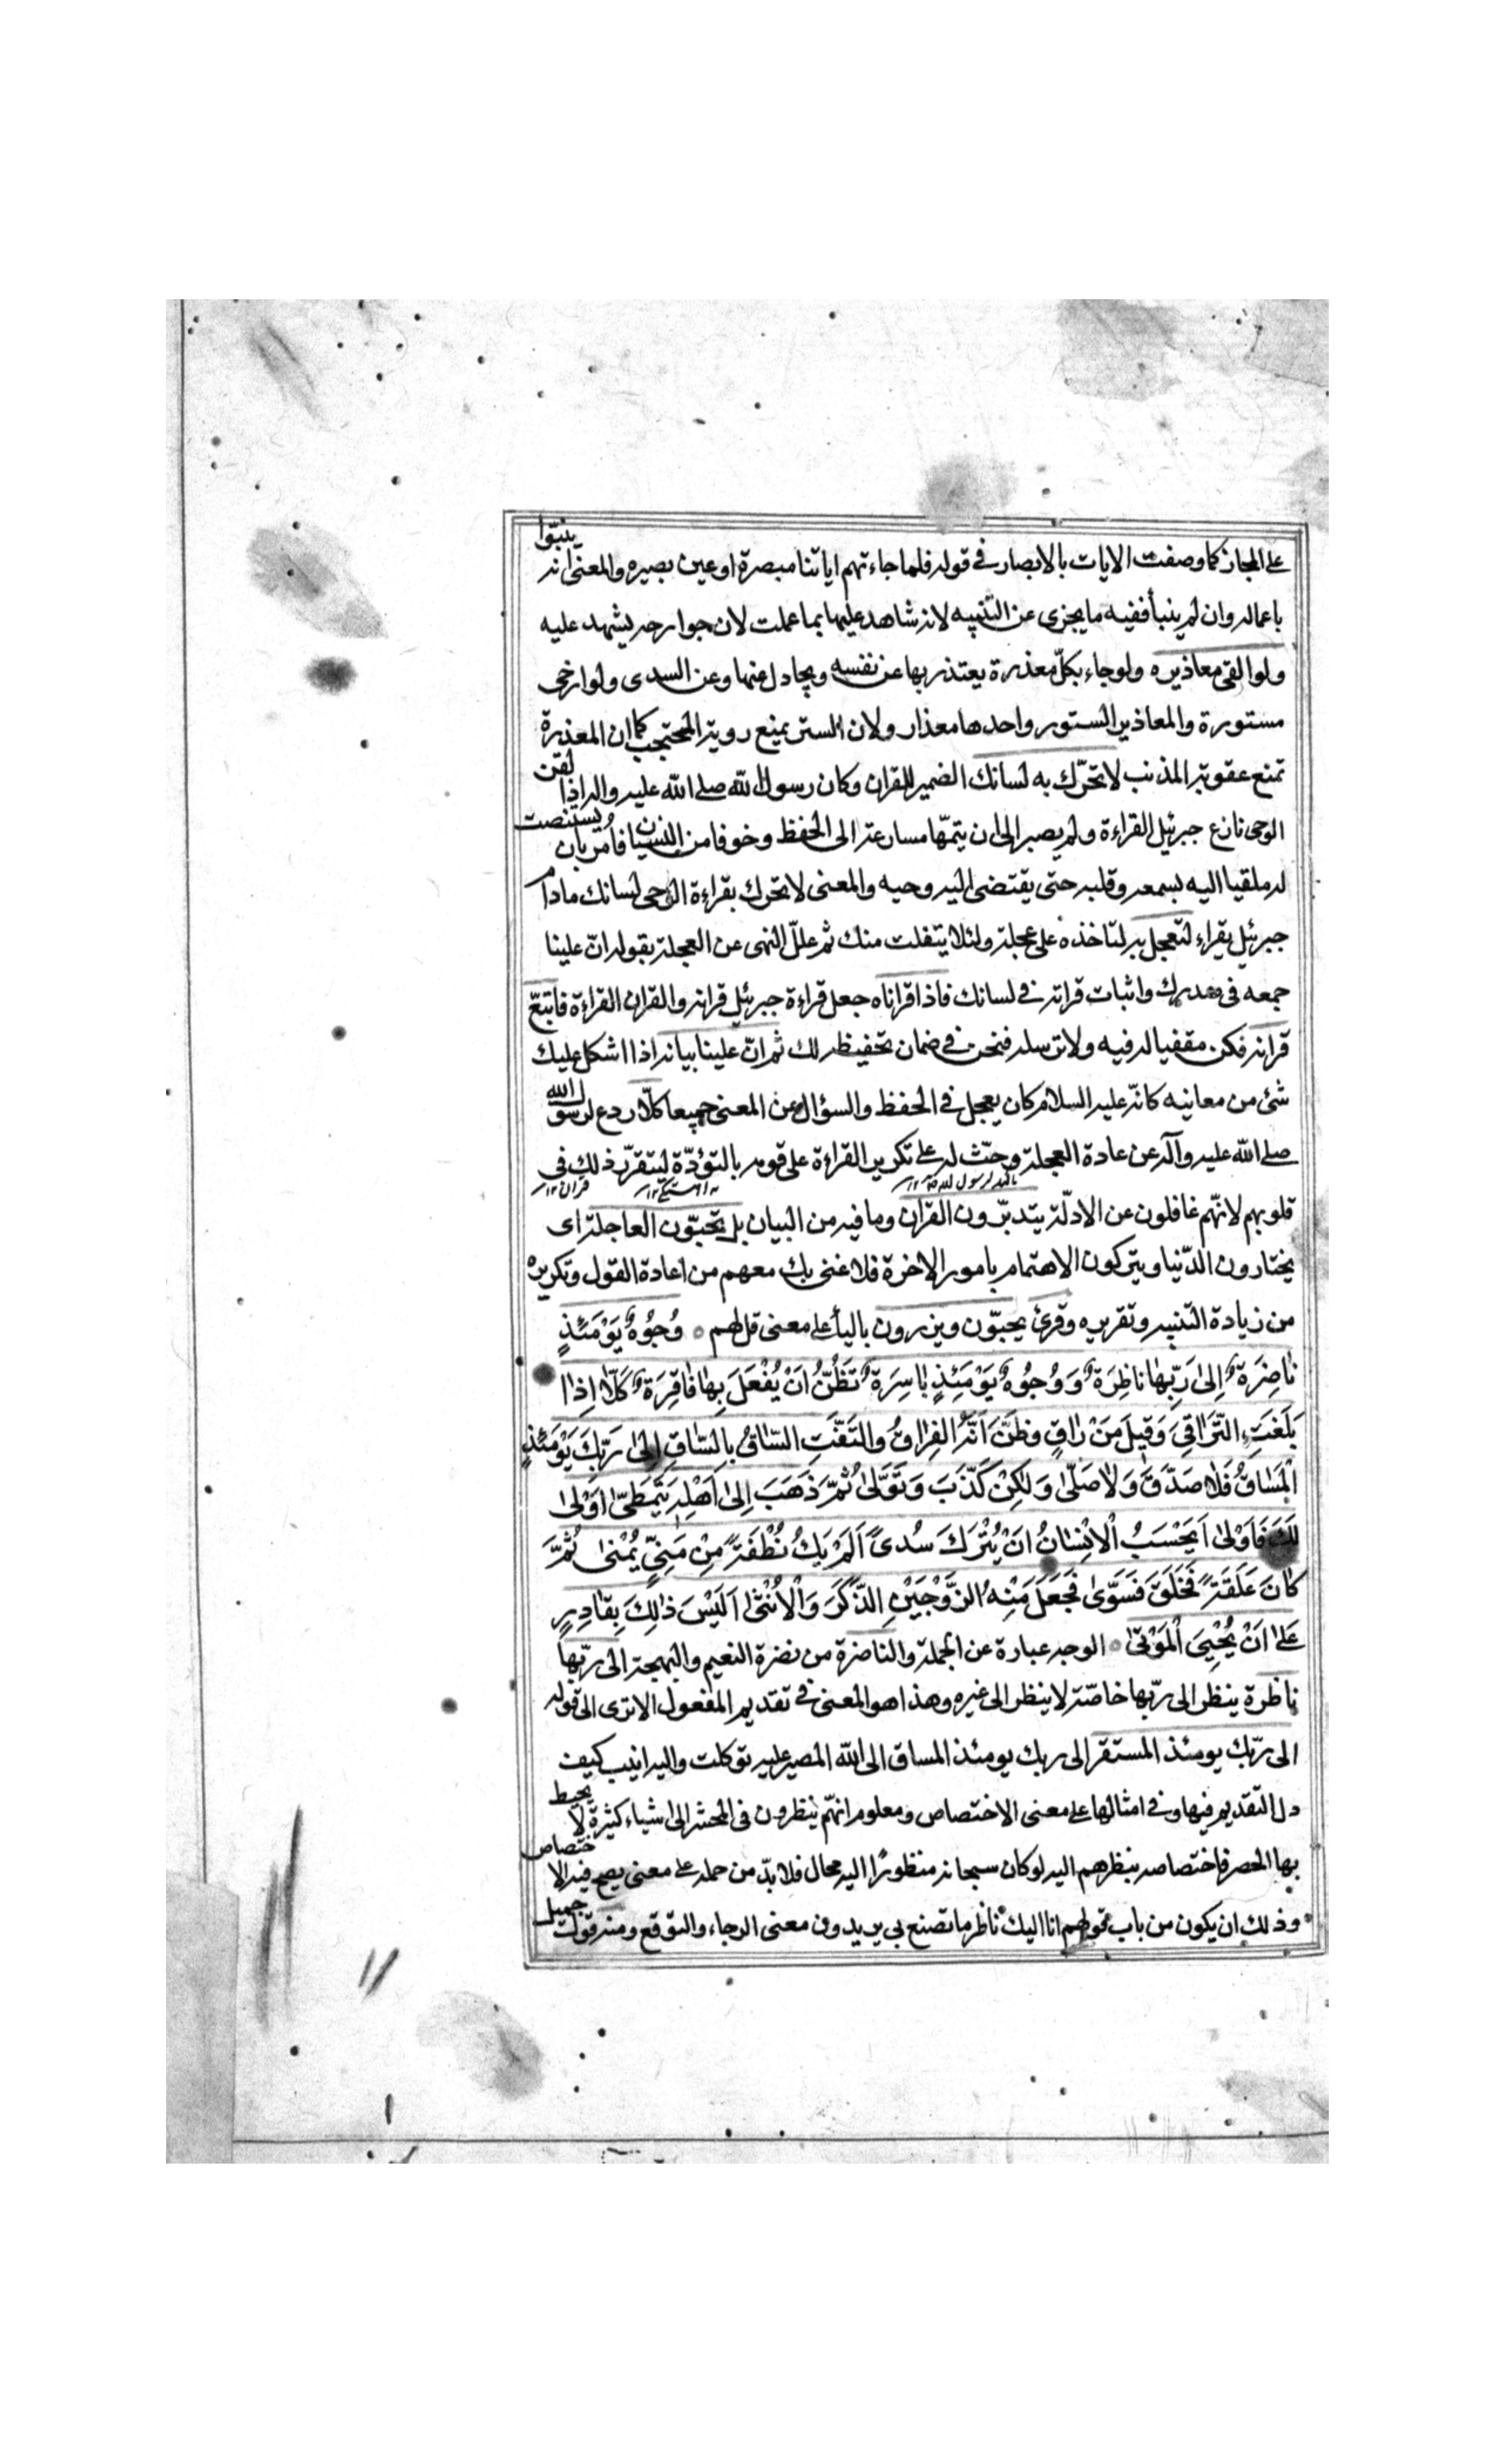 على المجاز كما وصفت الايات بالابصار في قوله فلما جاءتهم اياتنا مبصرة او عين بصيره والمعنى انه ينبّؤا
باعماله وان لم ينبأ ففيه ما يجزى عن التنبيه لانه شاهد عليها بما عملت لان جوارحه يشهد عليه
ولو القى معاذيره ولو جاء بكلّ معذرة يعتذر بها عن نفسه ويجادل عنها وعن السدى ولو ارخى
ستورة والمعاذير الستور واحدها معذار ولان الستر يمنع روية المحتجب كما ان المعذرة
تمنع عقوبة المذنب لا تحرّك به لسانك الضمير للقران وكان رسول الله صلى الله عليه واله اذا لقن
الوحى نازع جبرئيل القراءة ولم يصبر الى ان يتمّها مسارعة الى الحفظ وخوفا من النسيان فامر بان يستنصت
له ملقيا اليه بسمعه وقلبه حتى يقتضى اليه وحيه والمعنى لا تحرك بقراءة الوحى لسانك مادام
جبرئيل يقراء لتعجل به لتاخذه على عجلة ولئلا يتفلت منك ثم علل النهى عن العجلة بقوله انّ علينا
جمعه فى صدرك واثبات قراته في لسانك فاذا قراناه جعل قراءة جبرئيل قرانه والقران القراءة فاتبع
قرانه فكن مقفيا له فيه ولا تراسله فنحن في ضمان تحفيظه لك ثم انّ علينا بيانه اذا اشكل عليك
شئ من معانيه كانه عليه السلام كان يعجل في الحفظ والسؤال عن المعنى جميعا كلّا ردع لرسول الله
صلى الله عليه وآله عن عادة العجلة وحثّ له على تكرير القراءة على قومه بالتؤدّة ليتقرّر ذلك في
قلوبهم لانهّم غافلون عن الادلّة يتدبّرون القران وما فيه من البيان بل تحبّون العاجلة اى
يختارون الدّنيا ويتركون الاهتمام بامور الاخرة فلا غنى بك معهم من اعادة القول وتكريره
من زيادة التنبيه وتقريره وقرئ يحبّون ويزرون بالياء على معنى قل لهم وُجُوهٌ يَوْمَئِذٍ
نَاضِرَةٌ اِلىٰ رَبِّهَا نَاظِرَةٌ وَوُجُوهٌ يَوْمَئِذٍ بَاسِرَةٌ تَظُنُّ اَنْ يُفْعَلَ بِهَا فَاقِرَةٌ كَلّا اِذَا
بَلَغَتِ التَّرَاقِىَ وَقِيلَ مَنْ رَاقٍ وَظَنَّ اَنَّهُ الفِرَاقُ وَالتَفَّتِ السَّاقُ بِالسَّاقِ اِلىٰ رَبِّكَ يَوْمَئِذٍ
الْمَسَاقُ فَلا صَدَّقَ وَلاصَلّىٰ وَلٰكِنْ كَذَّبَ وَتَوَلّىٰ ثُمَّ ذَهَبَ اِلىٰ اَهْلِهِ يَتَمَطّىٰ اَوْلىٰ
لَكَ فَاَوْلىٰ اَيَحْسَبُ الْاِنْسَانُ اَنْ يُتْرَكَ سُدىً اَلَمْ يَكُ نُطْفَةً مِنْ مَنِىٍّ يُمْنىٰ ثُمَّ
كَانَ عَلَقَةً فَخَلَقَ فَسَوّىٰ فَجَعَلَ مِنْهُ الزَّوْجَيْنِ الذَّكَرَ وَالْاُنْثىٰ اَلَيْسَ ذٰلِكَ بِقَادِرٍ
عَلىٰ اَنْ يُحْيِىَ الْمَوْتىٰ الوجه عبارة عن الجملة والناضرة من نضرة النعيم والبهجة الى ربّها
ناظرة ينظر الى ربّها خاصّة لا ينظر الى غيره وهذا هو المعنى في تقديم المفعول الا ترى الى قوله
الى ربّك يومئذ المستقر الى ربك يومئذ المساق الى الله المصير عليه توكلت واليه انيب كيف
دل التقديم فيها وفي امثالها على معنى الاختصاص ومعلوم انهّم ينظرون فى المحشر الى اشياء كثيرة لا يحيط
بها الحصر فاختصاصه بنظرهم اليه لو كان سبحانه منظورًا اليه محال فلا بدّ من حمله على معنى يصح فيه الاختصاص
وذلك ان يكون من باب قولهم انا اليك ناظر ما تصنع بي يريدون معنى الرجاء والتوقع ومنه قول جميل